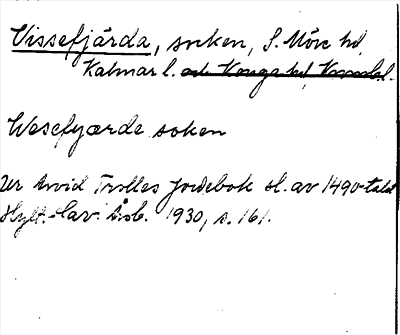 Vissefjärda, socken, S. Möre hd,
Kalmar l. och Konga hd, Kronob. l.
Wesefyærde soken
Ur Arvid Trolles Jordebok sl. av 1490-talet
Hylt.-Cav. Årsb. 1930, s. 161.